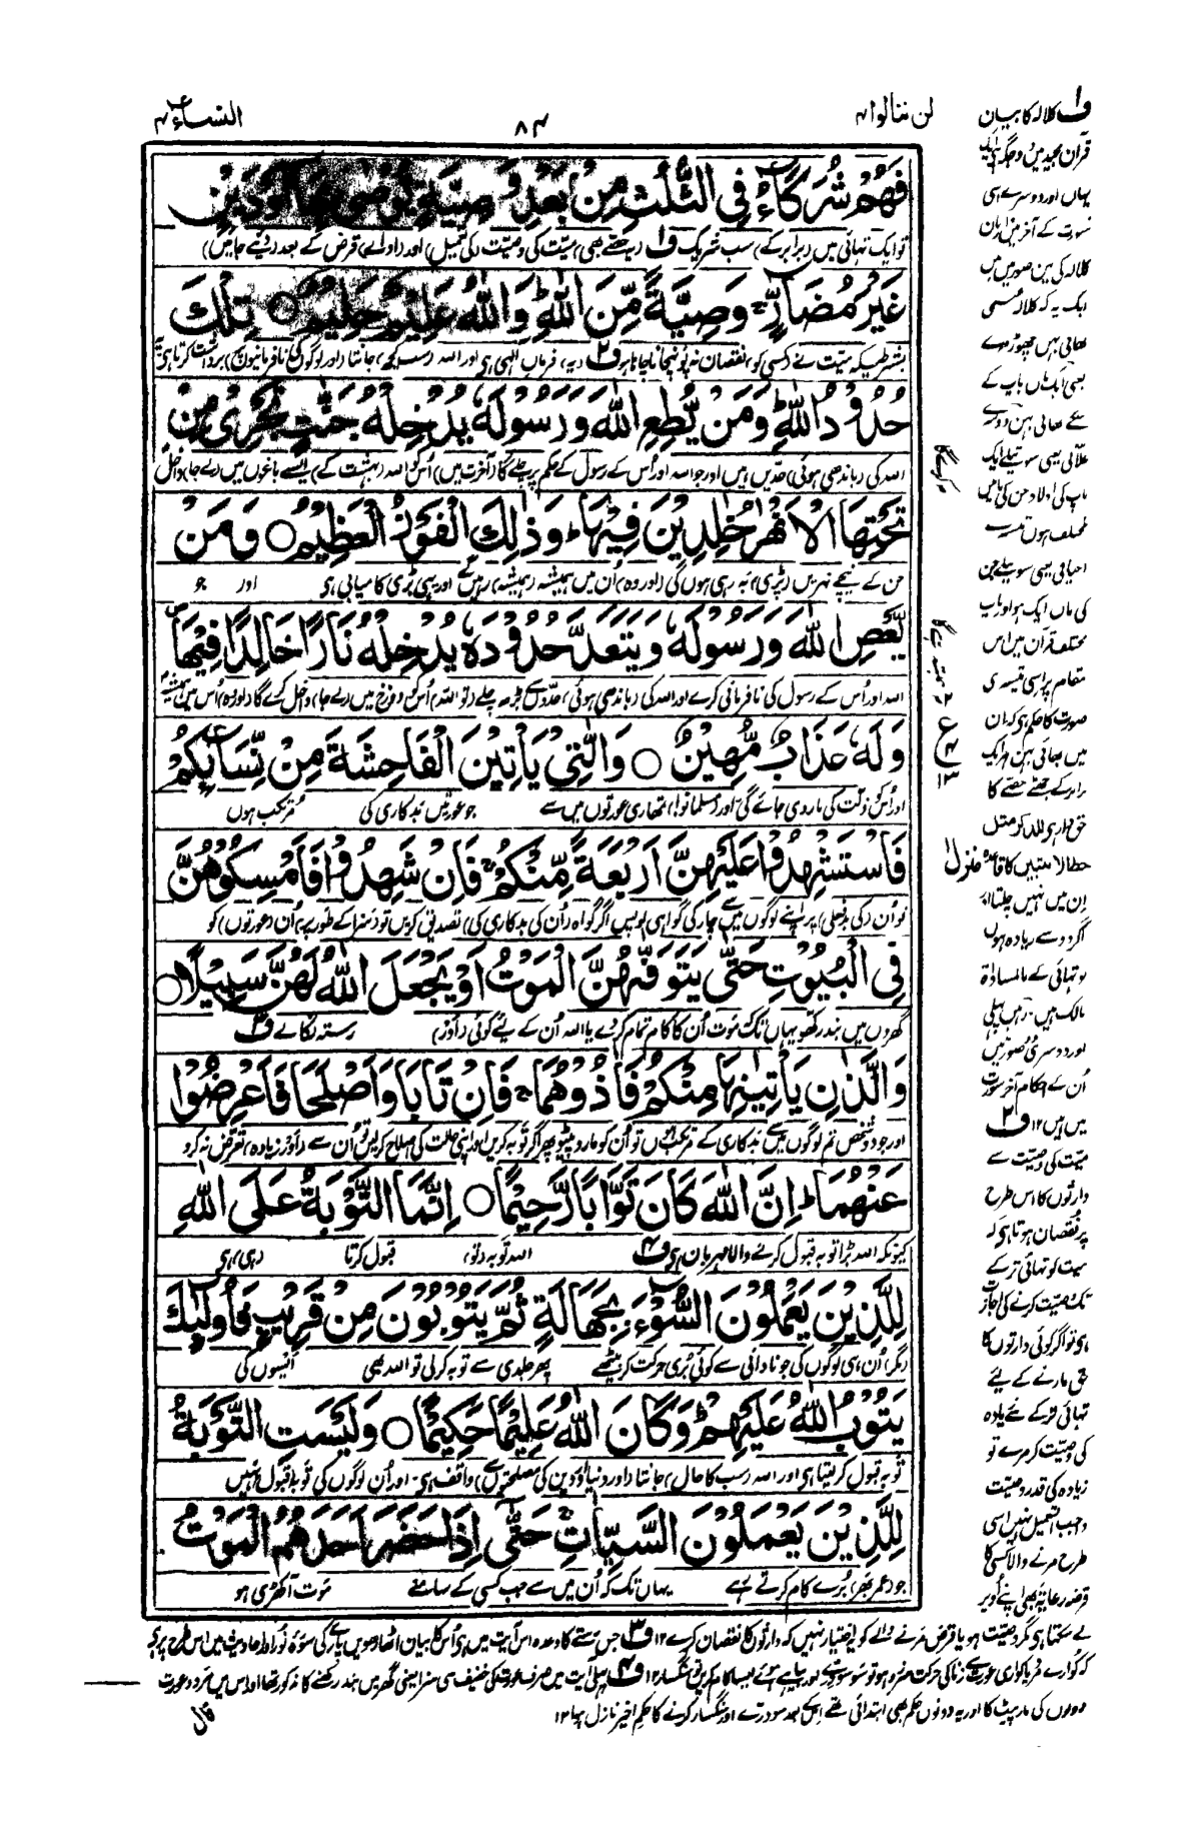 لن تنالوا ۴
۸۴
النساء ۴
فَهُمْ شُرَكَآءُ فِى الثُّلُثِ مِنْۢ بَعْدِ وَصِيَّةٍ يُّوْصٰى بِهَآ اَوْ دَيْنٍ
تو ایک تہائی میں (برابر کے) سب شریک ف۱ (یہ حصے بھی) میّت کی وصیت (کی تعمیل) اور (ادائے) قرض کے بعد (دیئے جائیں)
غَيْرَ مُضَآرٍّ ۚ وَصِيَّةً مِّنَ اللّٰهِ ؕ وَاللّٰهُ عَلِيْمٌ حَلِيْمٌ ○ تِلْكَ
بشرطیکہ میّت نے (کسی کو) نقصان نہ پونہچانا چاہا ہو ف۲ (یہ) فرمان الٰہی ہی اور اللہ (سب کچھ) جانتا (اور لوگوں کی نافرمانیوں کی) برداشت کرتا ہی یہ
حُدُوْدُ اللّٰهِ ؕ وَمَنْ يُّطِعِ اللّٰهَ وَرَسُوْلَهٗ يُدْخِلْهُ جَنّٰتٍ تَجْرِىْ مِنْ
اللہ کی (باندھی ہوئی) حدّیں ہیں اور جو اللہ اور اُس کے رسول کے حکم پر چلے گا (آخرت میں) اُس کو اللہ (بہشت کے) ایسے باغوں میں (لے جا) داخل
تَحْتِهَا الْاَنْهٰرُ خٰلِدِيْنَ فِيْهَا ؕ وَذٰلِكَ الْفَوْزُ الْعَظِيْمُ ○ وَمَنْ
جن کے نیچے نہریں (پڑی) بہ رہی ہوں گی (اور وہ) اُن میں ہمیشہ (ہمیشہ) رہیں گے اور یہی بڑی کامیابی ہی اور جو
يَّعْصِ اللّٰهَ وَرَسُوْلَهٗ وَيَتَعَدَّ حُدُوْدَهٗ يُدْخِلْهُ نَارًا خَالِدًا فِيْهَا ۪
اللہ اور اُس کے رسول کی نافرمانی کرے اور اللہ کی (باندھی ہوئی) حدّوں سے بڑھ چلے (تو اللہ) اُس کو دوزخ میں (لے جا) داخل کرے گا (اور وہ) اُس میں ہمیشہ
وَلَهٗ عَذَابٌ مُّهِيْنٌ ○ وَالّٰتِىْ يَاْتِيْنَ الْفَاحِشَةَ مِنْ نِّسَآئِكُمْ
اور اُس کو ذلّت کی مار دی جائے گی اور (مسلمانو!) تمھاری عورتوں میں سے جو عورتیں بدکاری کی مرتکب ہوں
فَاسْتَشْهِدُوْا عَلَيْهِنَّ اَرْبَعَةً مِّنْكُمْ ۚ فَاِنْ شَهِدُوْا فَاَمْسِكُوْهُنَّ
تو اُن (کی بدفعلی) پر اپنے لوگوں میں سے چار کی گواہی لو پس اگر گواہ (اُن کی بدکاری کی) تصدیق کریں تو (سزا کے طور پر) اُن (عورتوں) کو
فِى الْبُيُوْتِ حَتّٰى يَتَوَفّٰهُنَّ الْمَوْتُ اَوْ يَجْعَلَ اللّٰهُ لَهُنَّ سَبِيْلًا ○
گھروں میں بند رکھو یہاں تک کہ موت اُن کا کام تمام کر دے یا اللہ اُن کے لیے کوئی (اَور) رستہ نکالے ف۳
وَالَّذٰنِ يَاْتِيٰنِهَا مِنْكُمْ فَاٰذُوْهُمَا ۚ فَاِنْ تَابَا وَاَصْلَحَا فَاَعْرِضُوْا
اور جو دو شخص تم لوگوں میں سے بدکاری کے مرتکب ہوں تو اُن کو مارو پیٹو پھر اگر توبہ کریں اور اپنی حالت کی اصلاح کرلیں تو اُن سے (اَور زیادہ) تعرّض نہ کرو
عَنْهُمَا ؕ اِنَّ اللّٰهَ كَانَ تَوَّابًا رَّحِيْمًا ○ اِنَّمَا التَّوْبَةُ عَلَى اللّٰهِ
کیونکہ اللہ بڑا توبہ قبول کرنے والا مہربان ہی ف۴ اللہ توبہ (تو) قبول کرتا (ہی) ہی
لِلَّذِيْنَ يَعْمَلُوْنَ السُّوْٓءَ بِجَهَالَةٍ ثُمَّ يَتُوْبُوْنَ مِنْ قَرِيْبٍ فَاُولٰٓئِكَ
(مگر) اُن ہی لوگوں کی جو نادانی سے کوئی بُری حرکت کر بیٹھتے پھر جلدی سے توبہ کرلی تو اللہ بھی ایسوں کی
يَتُوْبُ اللّٰهُ عَلَيْهِمْ ؕ وَكَانَ اللّٰهُ عَلِيْمًا حَكِيْمًا ○ وَلَيْسَتِ التَّوْبَةُ
توبہ قبول کر لیتا ہی اور اللہ (سب کا حال) جانتا (اور دنیا و دین کی مصلحتوں سے) واقف ہی۔ اور اُن لوگوں کی توبہ قبول نہیں
لِلَّذِيْنَ يَعْمَلُوْنَ السَّيِّاٰتِ ۚ حَتّٰٓى اِذَا حَضَرَ اَحَدَهُمُ الْمَوْتُ
جو (عمر بھر) بُرے کام کرتے رہے یہاں تک کہ اُن میں سے جب کسی کے سامنے موت آ کھڑی ہو
ف۱ کلالہ کا بیان
قرآن مجید میں دو جگہ ہی ایک
یہاں اور دوسرے اسی
سورت کے آخر میں اور ان
کلالہ کی تین صورتیں ہیں
ایک یہ کہ کلالہ
بھائی بہن چھوڑ مرے
یعنی ایک ماں باپ کے
دوسرے
علّاتی یعنی سوتیلے ایک
باپ کی اولاد جن کی مائیں
مختلف ہوں تیسرے
اخیافی یعنی سوتیلے جن
کی ماں ایک ہو اور باپ
مختلف قرآن میں اس
مقام پر اسی تیسری
صورت کا حکم ہی کہ ان
میں بھائی بہن ہر ایک
برابر کے چھٹے حصے کا
حق دار ہی للذکر مثل
حظ الانثیین کا قاعدہ
اِن میں نہیں چلتا اور
اگر دو سے زیادہ ہوں
تو تہائی کے بالمساواۃ
مالک ہیں۔ رہیں پہلی
اور دوسری صورتیں
اُن کے احکام آخر سورت
میں ہیں ۱۲ ف۲
میّت کی وصیّت سے
وارثوں کا اس طرح
پر نقصان ہوتا ہی کہ
میّت کو تہائی ترکے
تک وصیّت کرنے کی اجازت
ہی تو اگر کوئی وارثوں کا
حق مارنے کے لیے
تہائی ترکے سے زیادہ
کی وصیّت کر مرے تو
زیادہ کی قدر وصیّت
واجب التعمیل نہیں اسی
طرح مرنے والا کسی کا
قرضہ رعایۃً بھی اپنے اوپر
منزل۱
لے سکتا ہی مگر وصیّت ہو یا قرض مرنے والے کو یہ اختیار نہیں کہ وارثوں کا نقصان کرے ۱۲ ف۳ جس رستے کا وعدہ اس آیت میں ہی اُس کا بیان اٹھارھویں پارے کی سورۂ نور اور احادیث میں اس طرح پر ہی
کہ کنوارے مرد یا کنواری عورت سے زنا کی حرکت سرزد ہو تو سَو سَو دُرّے اور بیاہے ہوئے ایسا کام کریں تو سنگسار ۱۲ ف۴ پہلی آیت میں صرف عورت کی خفیف سی سزا یعنی گھر میں بند رکھنے کا مذکور تھا اور اس میں مرد و عورت
دونوں کی مارپیٹ کا اور یہ دونوں حکم بھی ابتدائی تھے اِس کے بعد سو دُرّے اور سنگسار کرنے کا حکم اخیر نازل ہوا ۱۲